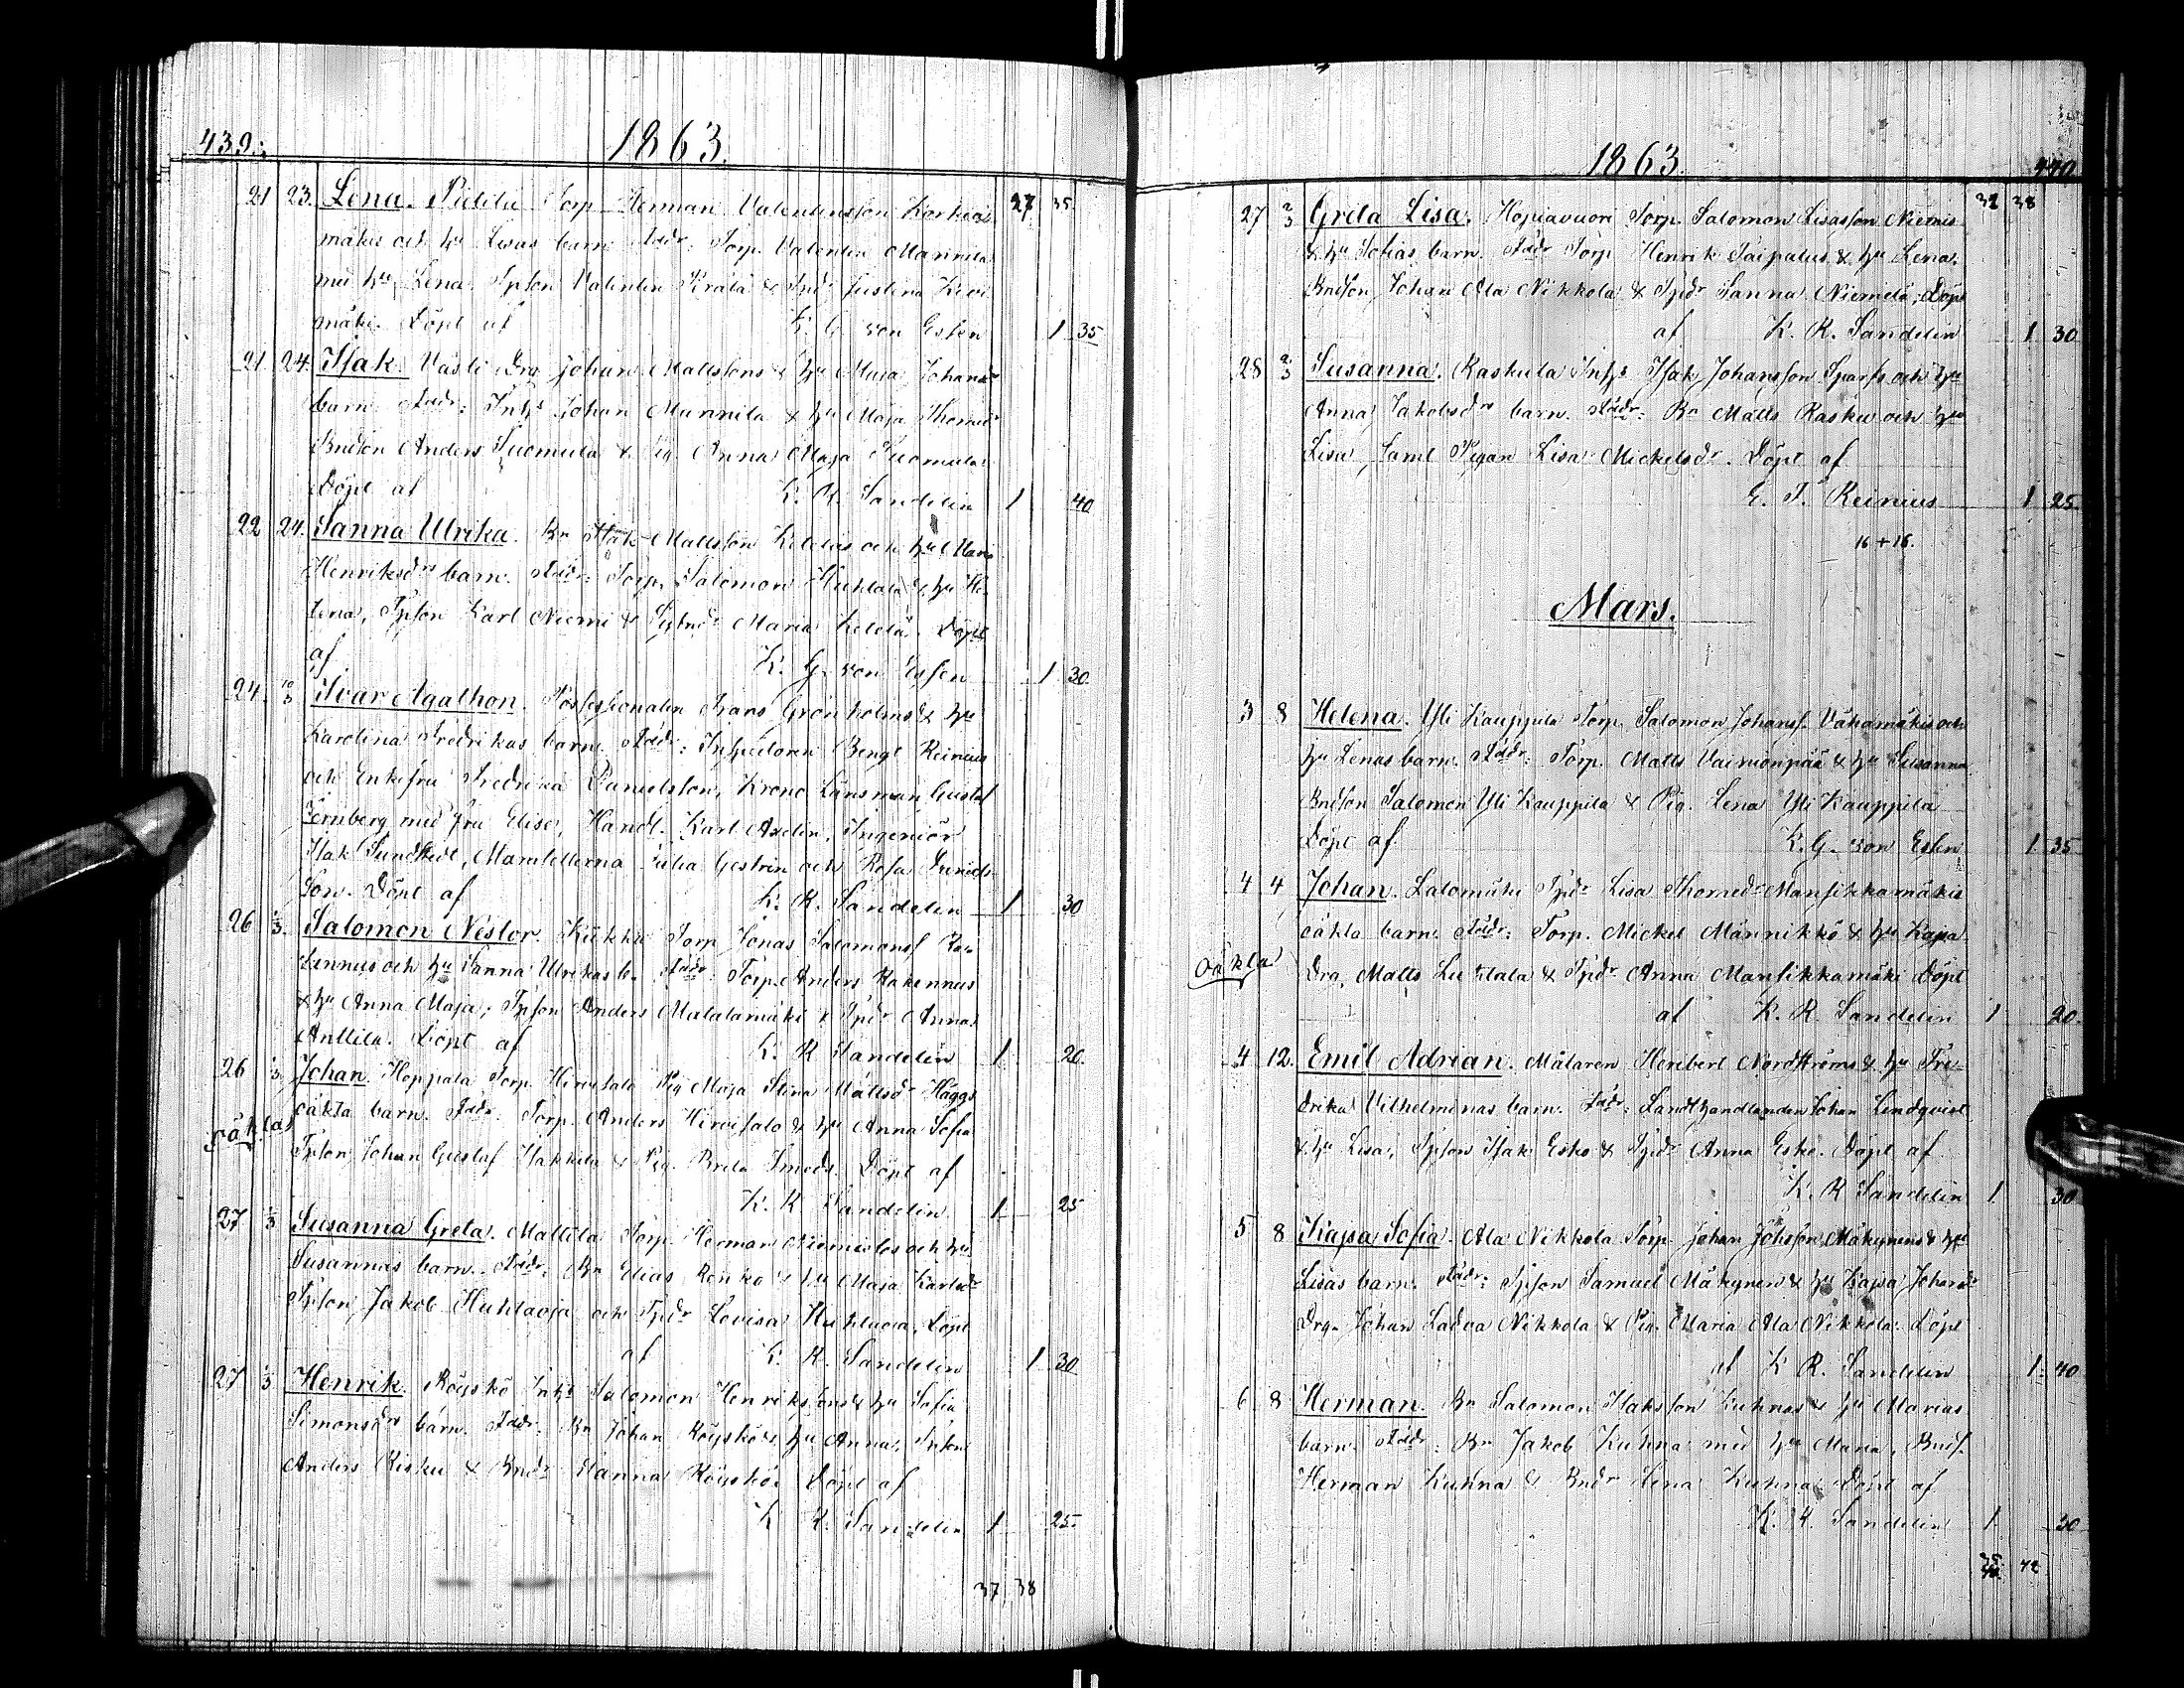 439.
1863.
27 35
21 23. Lena. Torp Herman Valentinsson Korkia-
mäkis och hu Lisas barn. Faddr: Torp. Valentin Mannila
med hu Lena, Tpson Valentin & Justina Kivi
mäki. Döpt af K. G. von Essen 1 35
21 24. Isak. Drg Johan Mattssons & hu Maja Johansdrs
barn. Faddr: Inhs Johan Mannila & hu Maja Thomasdr
Bndson Anders Suomula & Pig. Anna Maja Suomula
Döpt af K. R. Sandelin 1 40
22 24. Sanna Ulrika. Bn Isak Mattsson och hu Maria
Henriksdrs barn. Faddr: Torp. Salomon Huhtala & hu He-
lena, Tpson Karl Niemi & Maria Döpt
af K. G. von Essen 1 30.
24. 10/3 Ivar Agathon. Possessionaten Frans Grönholms & hu
Karolina Fredrikas barn. Faddr: Inspectoren Bengt Reinius
och Enkefru Fredrika Danielsson, Krono Länsman Gustaf
med fru Elise, Handl. Karl Axelin, Ingeniör
Isak Sundkvist, Mamsellerna Julia Gestrin och Rosa
son. Döpt af K. R. Sandelin 1 30
26 1/3. Salomon Nestor. Kukku Torp Jonas Salomons. Ra-
kennus och hu Sanna Ulrikas b. Faddr: Torp. Anders Rakennus
& hu Anna Maja, Tpson Anders Matalamäki & Tpdr Anna
Anttila. Döpt af K. R Sandelin 1 20
26 1/3 Johan. Hoppala Torp. Hirvisalo Pig Maja Stina Mattsdr Häggs
oäkta barn. Faddr: Torp. Anders Hirvisalo & hu Anna Sofia
oäkta
Tpson Johan Gustaf Hakkila & Pig. Brita Smeds. Döpt af
K. R. Sandelin 1 25
27 1/3 Susanna Greta. Mattila Torp. Herman och hu
Susannas barn. Faddr: Bn Elias Renko & hu Maja Karlsdr
Tpson Jakob Huhtaoja och Tpdr Lovisa Huhtaoja, Döpt
af K. R. Sandelin 1 30
27 1/3 Henrik. Röyskö Inhs Salomon Henrikssons & hu Sofia
Simonsdrs barn. Faddr: Bn Johan Röyskö & hu Anna, Tpson
Anders Risku & Bndr Sanna Röyskö. Döpt af
K R. Sandelin 1 25.
37 38
1863.
440
32 38
27 2/3 Greta Lisa. Hopiavuori Torp. Salomon Lisasson Niemis
& hu Sofias barn. Faddr Torp Henrik Taipalus & hu Lena.
Bndson Johan Ala Nikkola & Tpdr Sanna Niemelä, Döpt
af K. R. Sandelin 1 30
28 2/3 Susanna. Raskula Inhs Isak Johansson Sparfs och hu
Anna Jakobsdrs barn. Faddr: Bn Matts Rasku och hu
Lisa, samt Pigan Lisa Mickelsdr. Döpt af
E. J. Reinius 1 25.
16+16.
Mars.
3 8 Helena. Yli Kauppila Torp. Salomon Johans. Vähämäkis och
hu Lenas barn. Faddr: Torp. Matts Vainionpää & hu Susanna
Bndson Salomon Yli Kauppila & Pig. Lena Yli Kauppila
Döpt af K. G. von Essen 1 35
4 4 Johan. Salomäki Tpdr Lisa Thomasdr Mansikkamäkis
oäkta barn. Faddr: Torp. Mickel Männikkö & hu Kajsa
oäkta
Drg, Matts & Tpdr Anna Mansikkamäki Döpt
af K. R. Sandelin 1 20.
4 12. Emil Adrian. Målaren Heribert Nordströms & hu Fre-
drika Vilhelminas barn. Faddr: Landthandlanden Johan Lindqvist
& hu Lisa, Tpson Isak Esko & Tpdr Anna Esko. Döpt af
K. R Sandelin 1 30
5 8 Kajsa Sofia. Ala Nikkola Torp Johan Johsson Mäkynens & hu
Lisas barn. Faddr: Tpson Samuel Mäkynen & hu Kajsa Johansdr
Drg. Johan Ladva Nikkola & Pig. Maria Ala Nikkola. Döpt
af K R. Sandelin 1 40
6 8 Herman. Bn Salomon Isaksson Kuhnas & hu Marias
barn. Faddr: Bn Jakob Kuhna med hu Maria, Bnds.
Herman Kuhna & Bndr Lena Kuhna. Döpt af
K. R. Sandelin 1 30
35 42